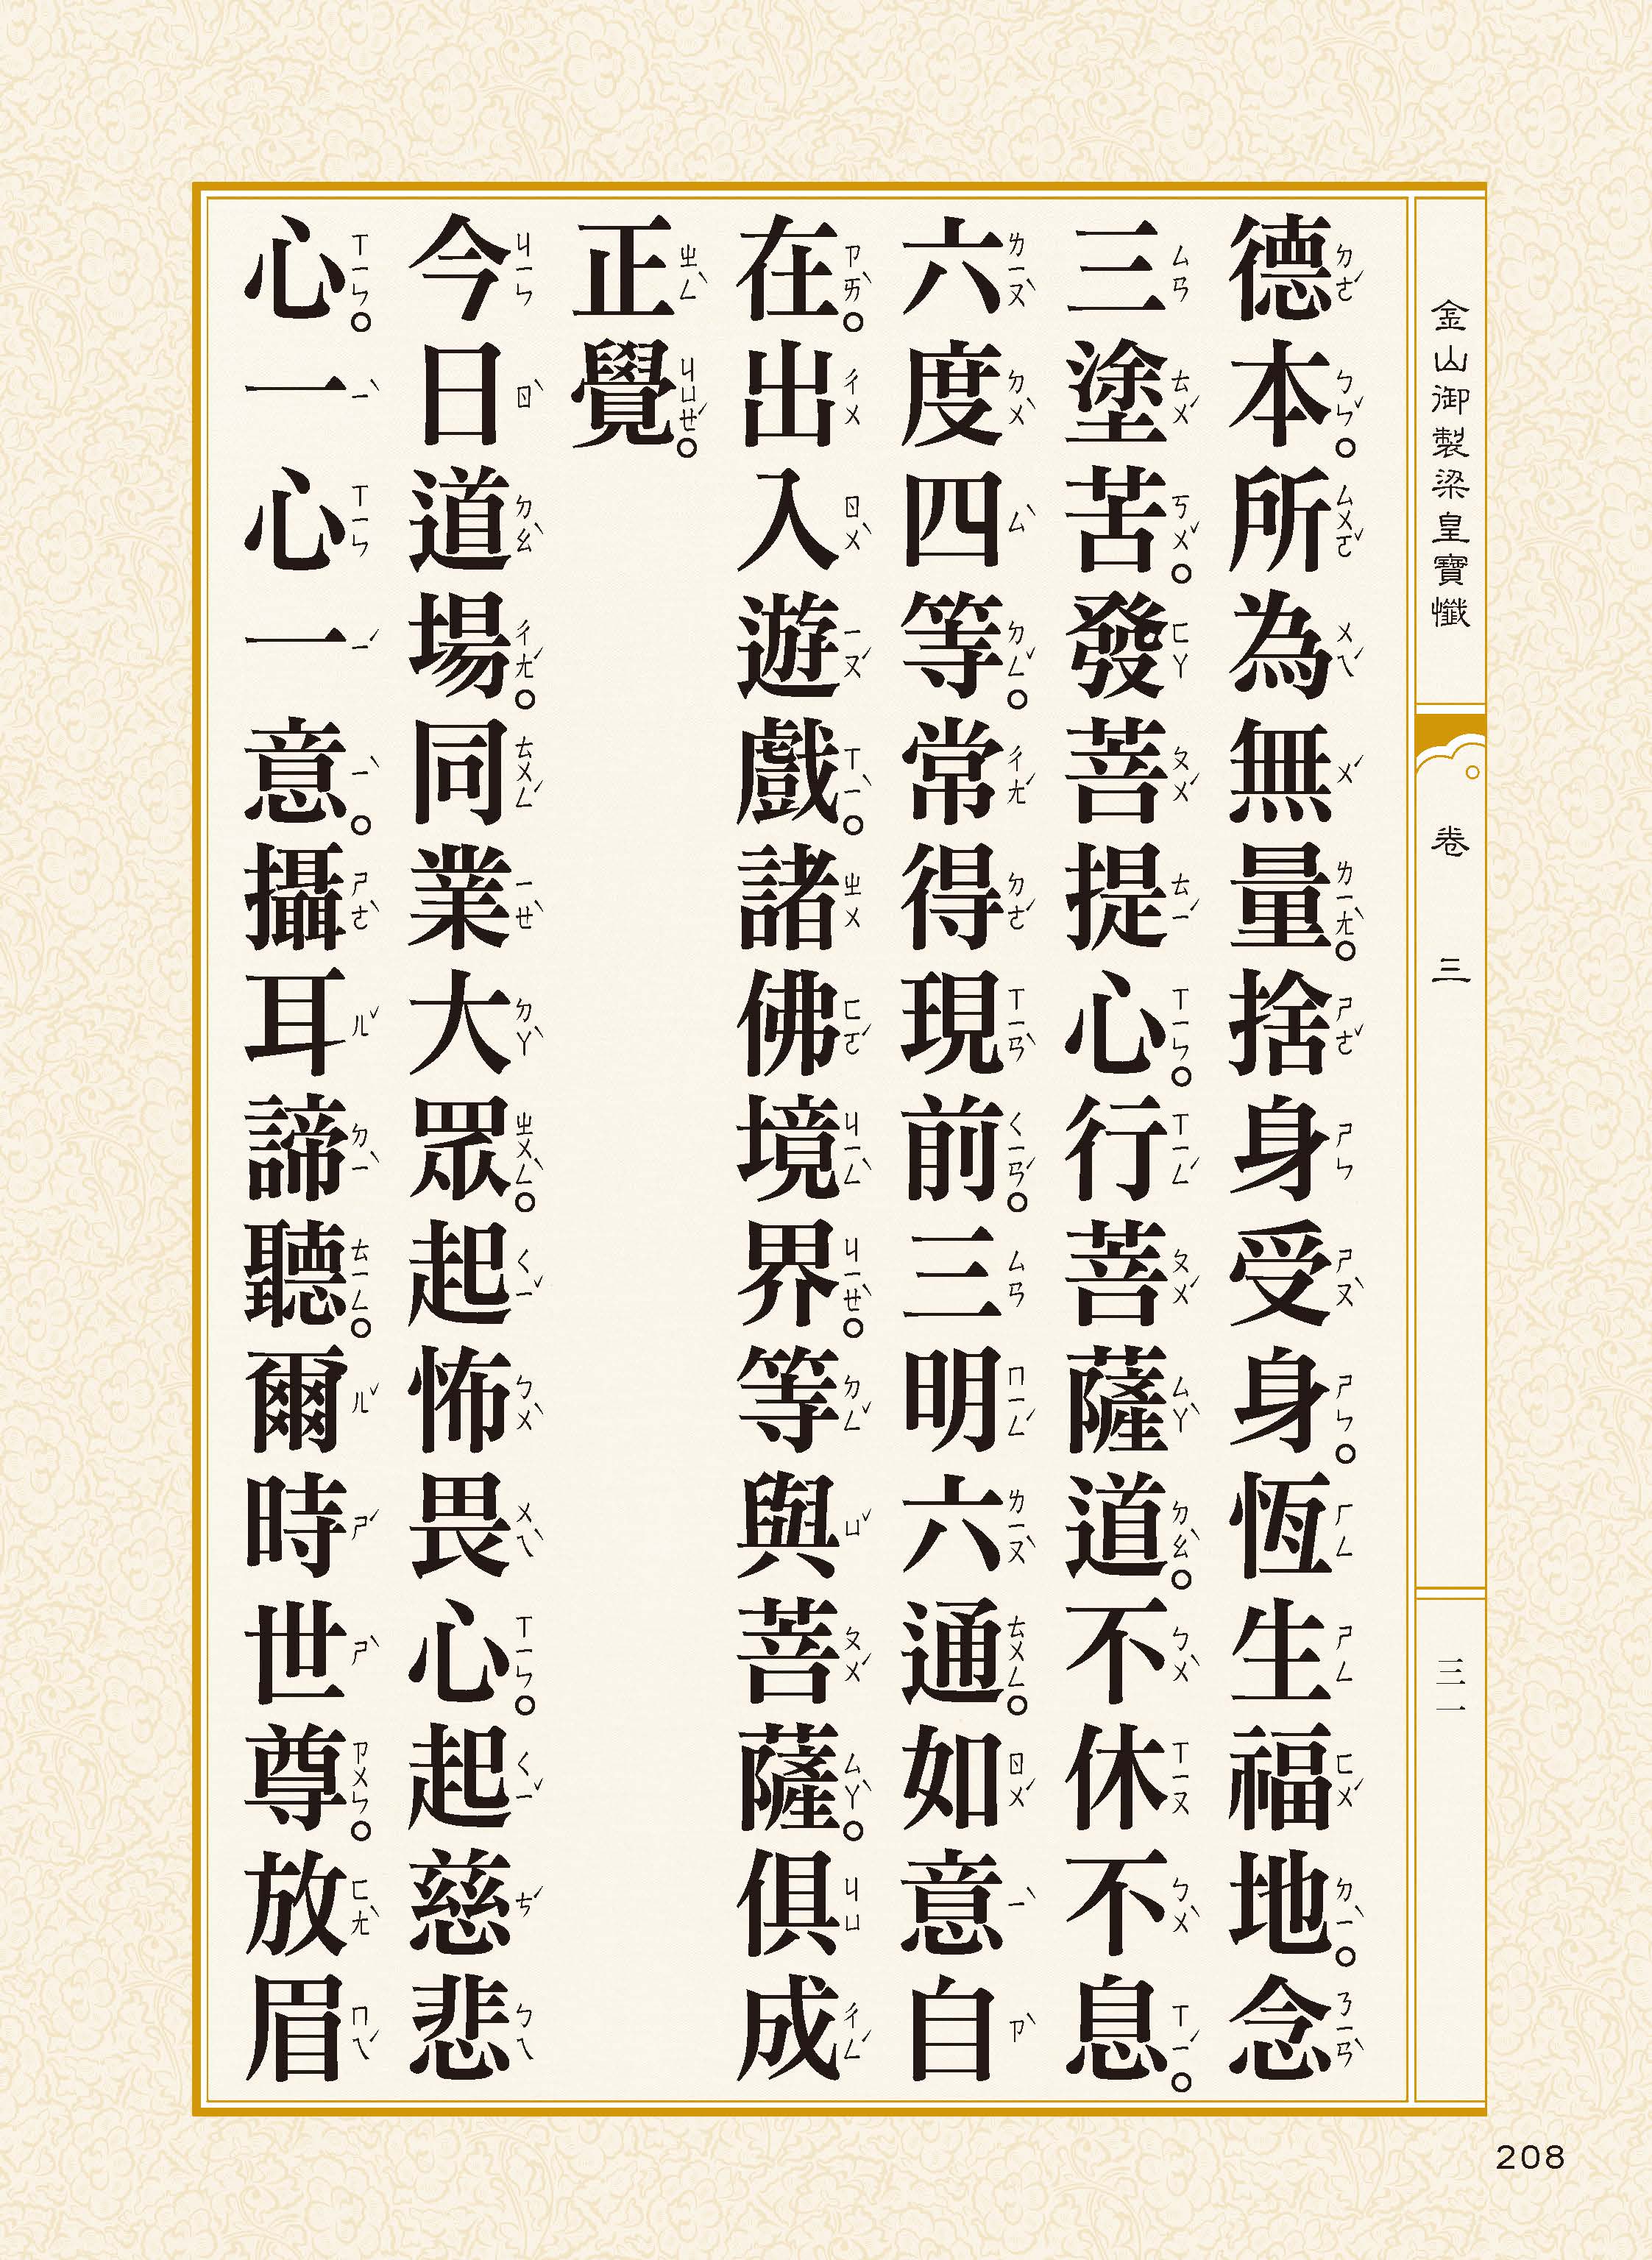 金山御製梁皇寶懺 卷三 三一
德本。所為無量。捨身受身。恆生福地。念
三塗苦。發菩提心。行菩薩道。不休不息。
六度四等。常得現前。三明六通。如意自
在。出入遊戲。諸佛境界。等與菩薩。俱成
正覺。
今日道場。同業大眾。起怖畏心。起慈悲
心。一心一意。攝耳諦聽。爾時世尊。放眉
208